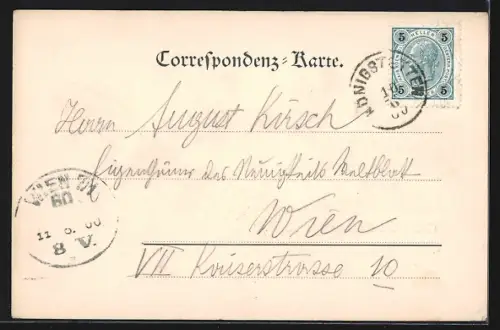 Correspondenz-Karte.
5 HELLER 5
5 5
KÖNIGSTETTEN
10
6
00
Herrn August Kirsch
Eigenthümer des Neuigkeits Weltblatt
Wien
VII Kaiserstrasse 10
WIEN 7/1
60
11 6. 00
8 V.